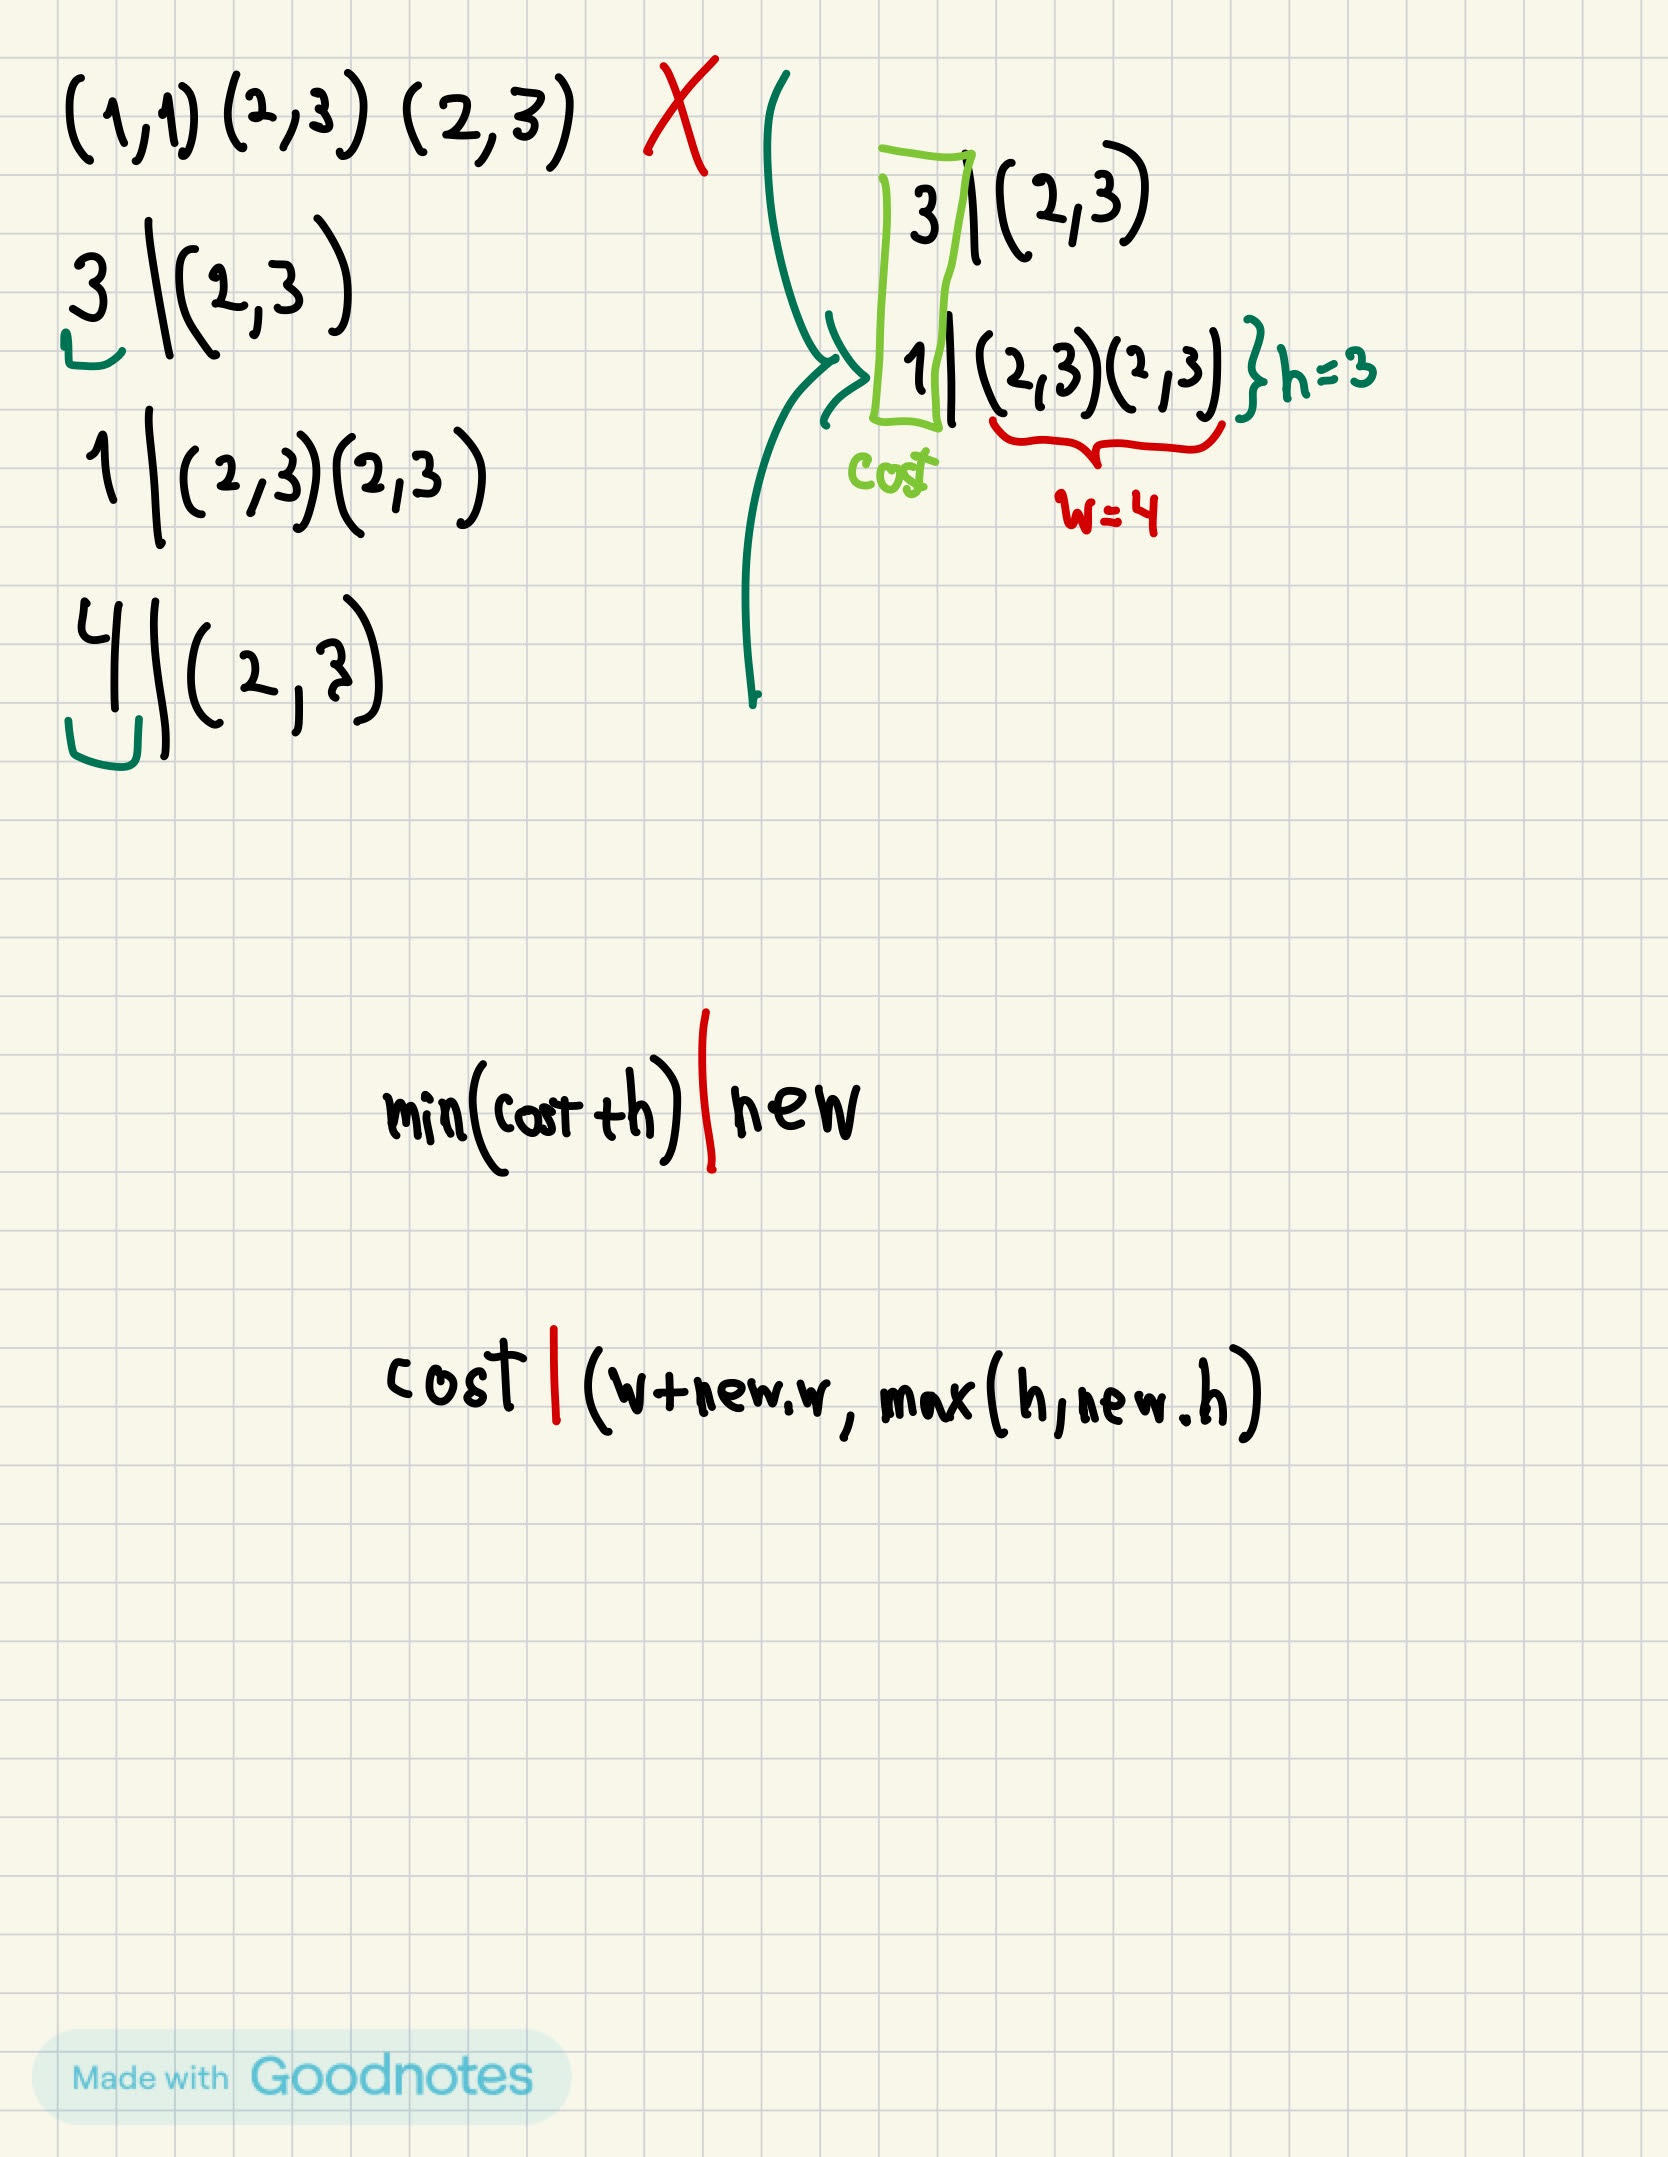 (1,1) (2,3) (2,3) X
3 | (2,3)
1 | (2,3)(2,3)
4 | (2,3)
3 | (2,3)
1 | (2,3)(2,3) } h=3
cost
w=4
min(cost+h) | new
cost | (w+new.w, max(h,new.h)
Made with Goodnotes